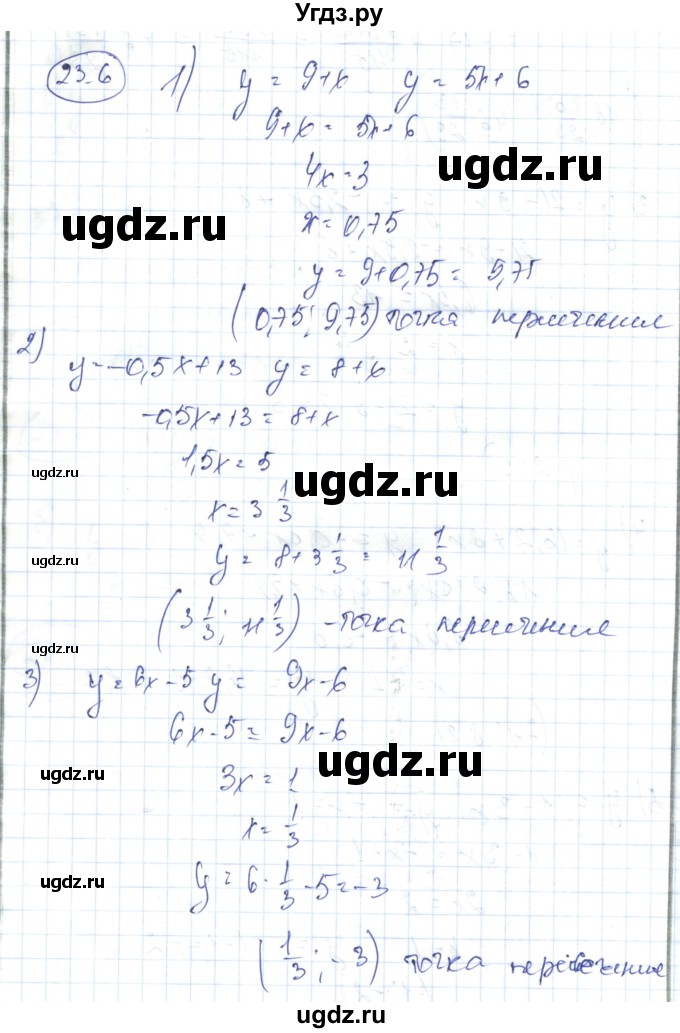 Угдз.ру
23.6 1) y = 9+x y = 5x+6
9+x = 5x+6
4x=3
x=0,75
y = 9+0,75 = 9,75
(0,75; 9,75) точка пересечения
2) y=-0,5x+13 y= 8+x
-0,5x+13=8+x
1,5x=5
x=3 1/3
y = 8+3 1/3 = 11 1/3
(3 1/3; 11 1/3) -точка пересечения
3) y=6x-5 y= 9x-6
6x-5= 9x-6
3x=1
x=1/3
y = 6·1/3-5=-3
(1/3; -3) точка пересечения
ugdz.ru
ugdz.ru
ugdz.ru
ugdz.ru
ugdz.ru
ugdz.ru
ugdz.ru
ugdz.ru
ugdz.ru
ugdz.ru